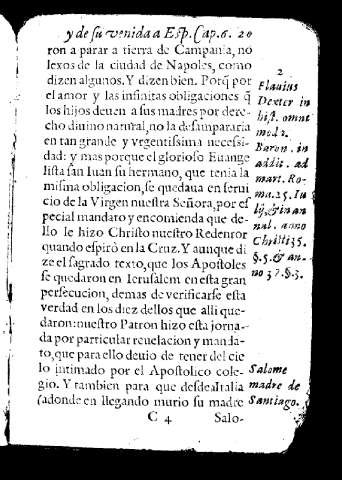 y de su venida a Esp. Cap. 6. 20
ron a parar a tierra de Campania, no
lexos de la ciudad de Napoles, como
dizen algunos. Y dizen bien. Porq̃ por
el amor y las infinitas obligaciones q̃
los hijos deuen a sus madres por dere-
cho diuino natural, no la desampararia
en tan grande y vrgentissima necessi-
dad: y mas porque el glorioso Euange
lista san Iuan su hermano, que tenia la
misma obligacion, se quedaua en serui
cio de la Virgen nuestra Señora, por es
pecial mandato y encomienda que de-
llo le hizo Christo nuestro Redentor
quando espirò en la Cruz. Y aunque di
ze el sagrado texto, que los Apostoles
se quedaron en Ierusalem en esta gran
persecucion, demas de verificarse esta
verdad en los diez dellos que alli que-
daron: nuestro Patron hizo esta jorna-
da por particular reuelacion y manda-
to, que para ello deuio de tener del cie
lo intimado por el Apostolico cole-
gio. Y tambien para que desde Italia
(adonde en llegando murio su madre
C 4 Salo-
2
Flauius
Dexter in
hist. omni
mod2.
Baron. in
addit. ad
mart. Ro-
ma. 25. Iu
lij, & in an
nal. anno
Christi 35.
§. 5. & an-
no 37. §. 3.
Salome
madre de
Santiago.